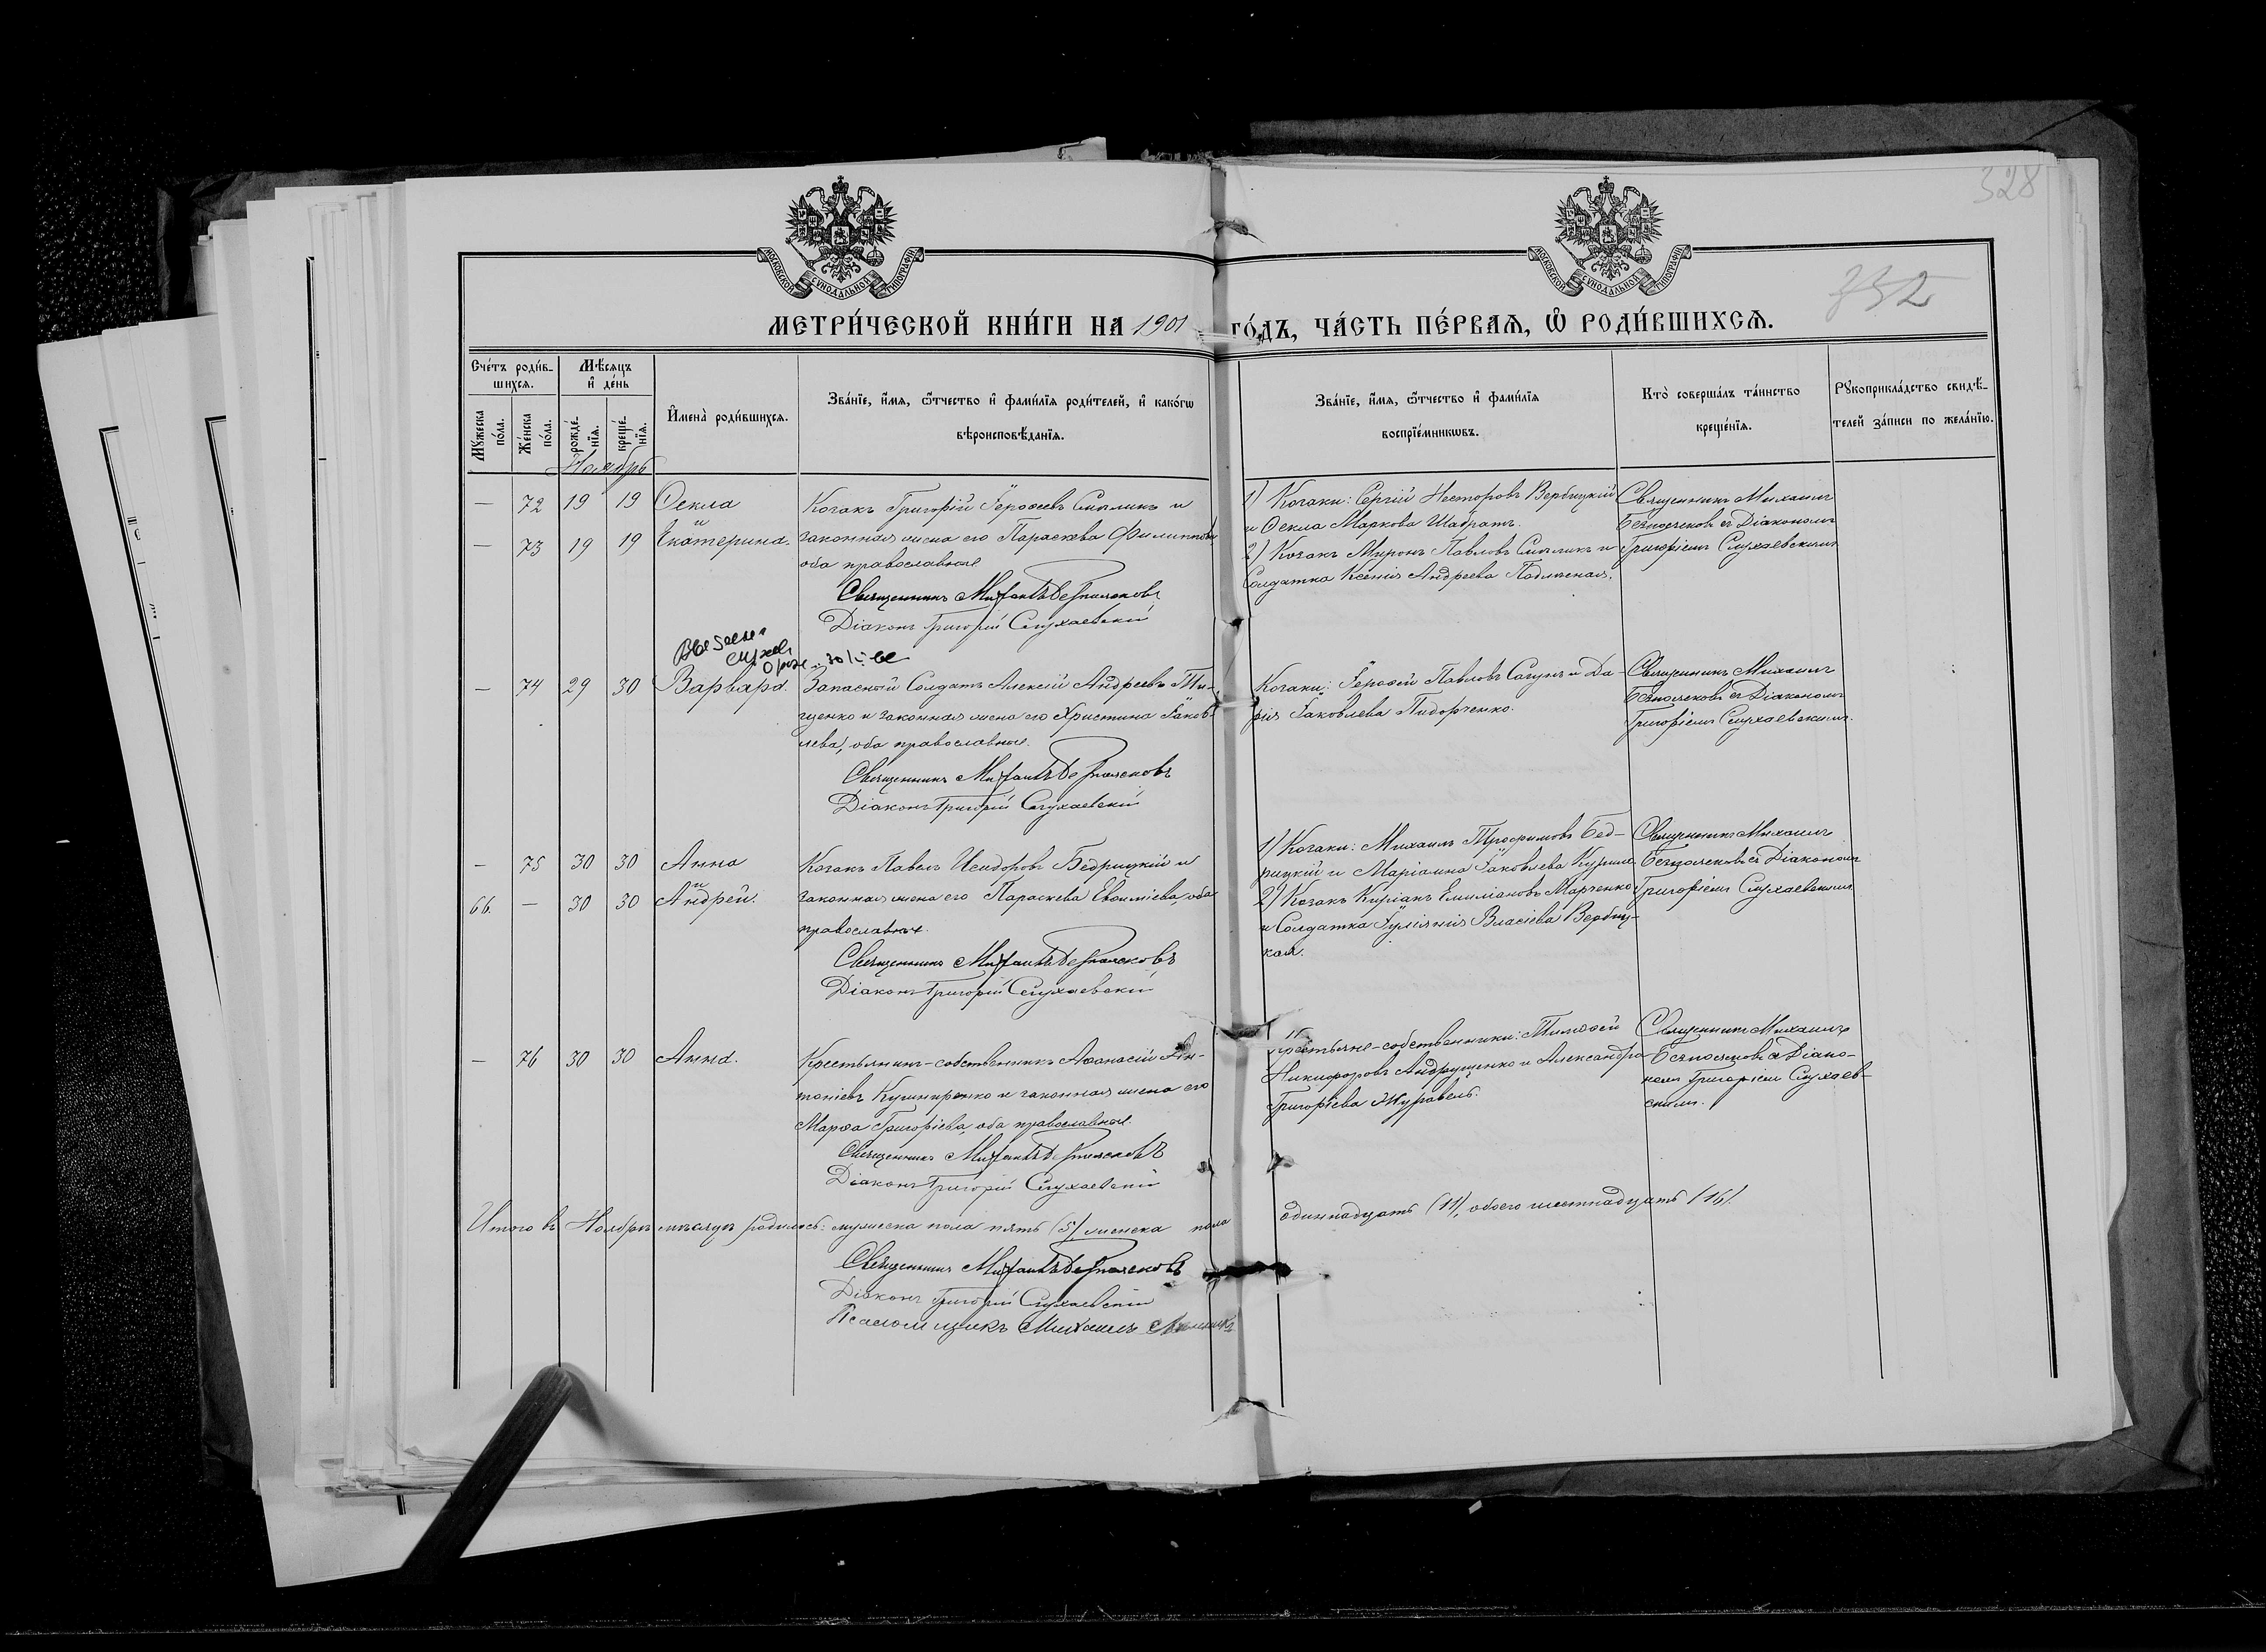 328
МОСКОВСКОЙ СѴНОДАЛЬНОЙ ТИПОГРАФІИ
МОСКОВСКОЙ СѴНОДАЛЬНОЙ ТИПОГРАФІИ
352
МЕТРИ́ЧЕСКОЙ КНИ́ГИ НА 1901 ГО́ДЪ, ЧА́СТЬ ПЕ́РВАѦ, Ѡ҆ РОДИ́ВШИХСѦ.
Сче́тъ роди́в-
шихсѧ.
Мѣ́сѧцъ
и҆ де́нь
Мꙋ́жеска
по́ла.
Же́нска
по́ла.
рожде́-
нїѧ.
креще́-
нїѧ.
И҆мена̀ роди́вшихсѧ.
Зва́нїе, и҆́мѧ, ѻ҆́тчество и҆ фами́лїѧ роди́телей, и҆ како́гѡ
вѣроисповѣ́данїѧ.
Зва́нїе, и҆́мѧ, ѻ҆́тчество и҆ фами́лїѧ
воспрїе́мникѡвъ.
Кто̀ соверша́лъ та́инство
креще́нїѧ.
Рꙋкоприкла́дство свидѣ́-
телей за́писи по жела́нїю.
Ноябрь
— 72 19 19 Ѳекла
и
— 73 19 19 Екатерина.
Козакъ Григорій Іероѳеевъ Смыликъ и
законная жена его Параскева Филиппова,
оба православные.
Священникъ Михаилъ Безпалчевъ
Діаконъ Григорій Слухаевскій
1) Козаки: Сергій Несторовъ Вербицкій
и Ѳекла Маркова Шабратъ.
2) Козакъ Миронъ Павловъ Смыликъ и
Солдатка Ксенія Андреева
Священникъ Михаилъ
съ Діакономъ
Григоріемъ Слухаевскимъ
— 74 29 30 Варвара.
Запасной Солдатъ Алексій Андреевъ Ти-
щенко и законная жена его Христина Іаков-
лева, оба православные.
Священникъ Михаилъ
Діаконъ Григорій Слухаевскій
Козаки: Іероѳей Павловъ Сагунъ и Да-
рія Іаковлева Пидорченко.
Священникъ Михаилъ
съ Діакономъ
Григоріемъ Слухаевскимъ.
— 75 30 30 Анна
и
66. — 30 30 Андрей.
Козакъ Павелъ Исидоровъ Бедрицкій и
законная жена его Параскева Евѳиміева, оба
православные.
Священникъ Михаилъ
Діаконъ Григорій Слухаевскій
1) Козаки: Михаилъ Трофимовъ Бед-
рицкій и Маріанна Іаковлева
2) Козакъ Киріакъ Емиліановъ Марченко
и Солдатка Іуліянія Власіева Вербиц-
кая.
Священникъ Михаилъ
съ Діакономъ
Григоріемъ Слухаевскимъ
— 76 30 30 Анна.
Крестьянинъ-собственникъ Аѳанасій Ан-
тоніевъ Кушниренко и законная жена его
Марѳа Григоріева, оба православные.
Священникъ Михаилъ
Діаконъ Григорій Слухаевскій
Крестьяне-собственники: Тимоѳей
Никифоровъ Андрущенко и Александра
Григоріева Журавель.
Священникъ Михаилъ
съ Діако-
номъ Григоріемъ Слухаев-
скимъ.
Итого въ Ноябрѣ мѣсяцѣ родилось: мужеска пола пять (5), женска пола одиннадцать (11), обоего шестнадцать (16).
Священникъ Михаилъ
Діаконъ Григорій Слухаевскій
Псаломщикъ Михаилъ